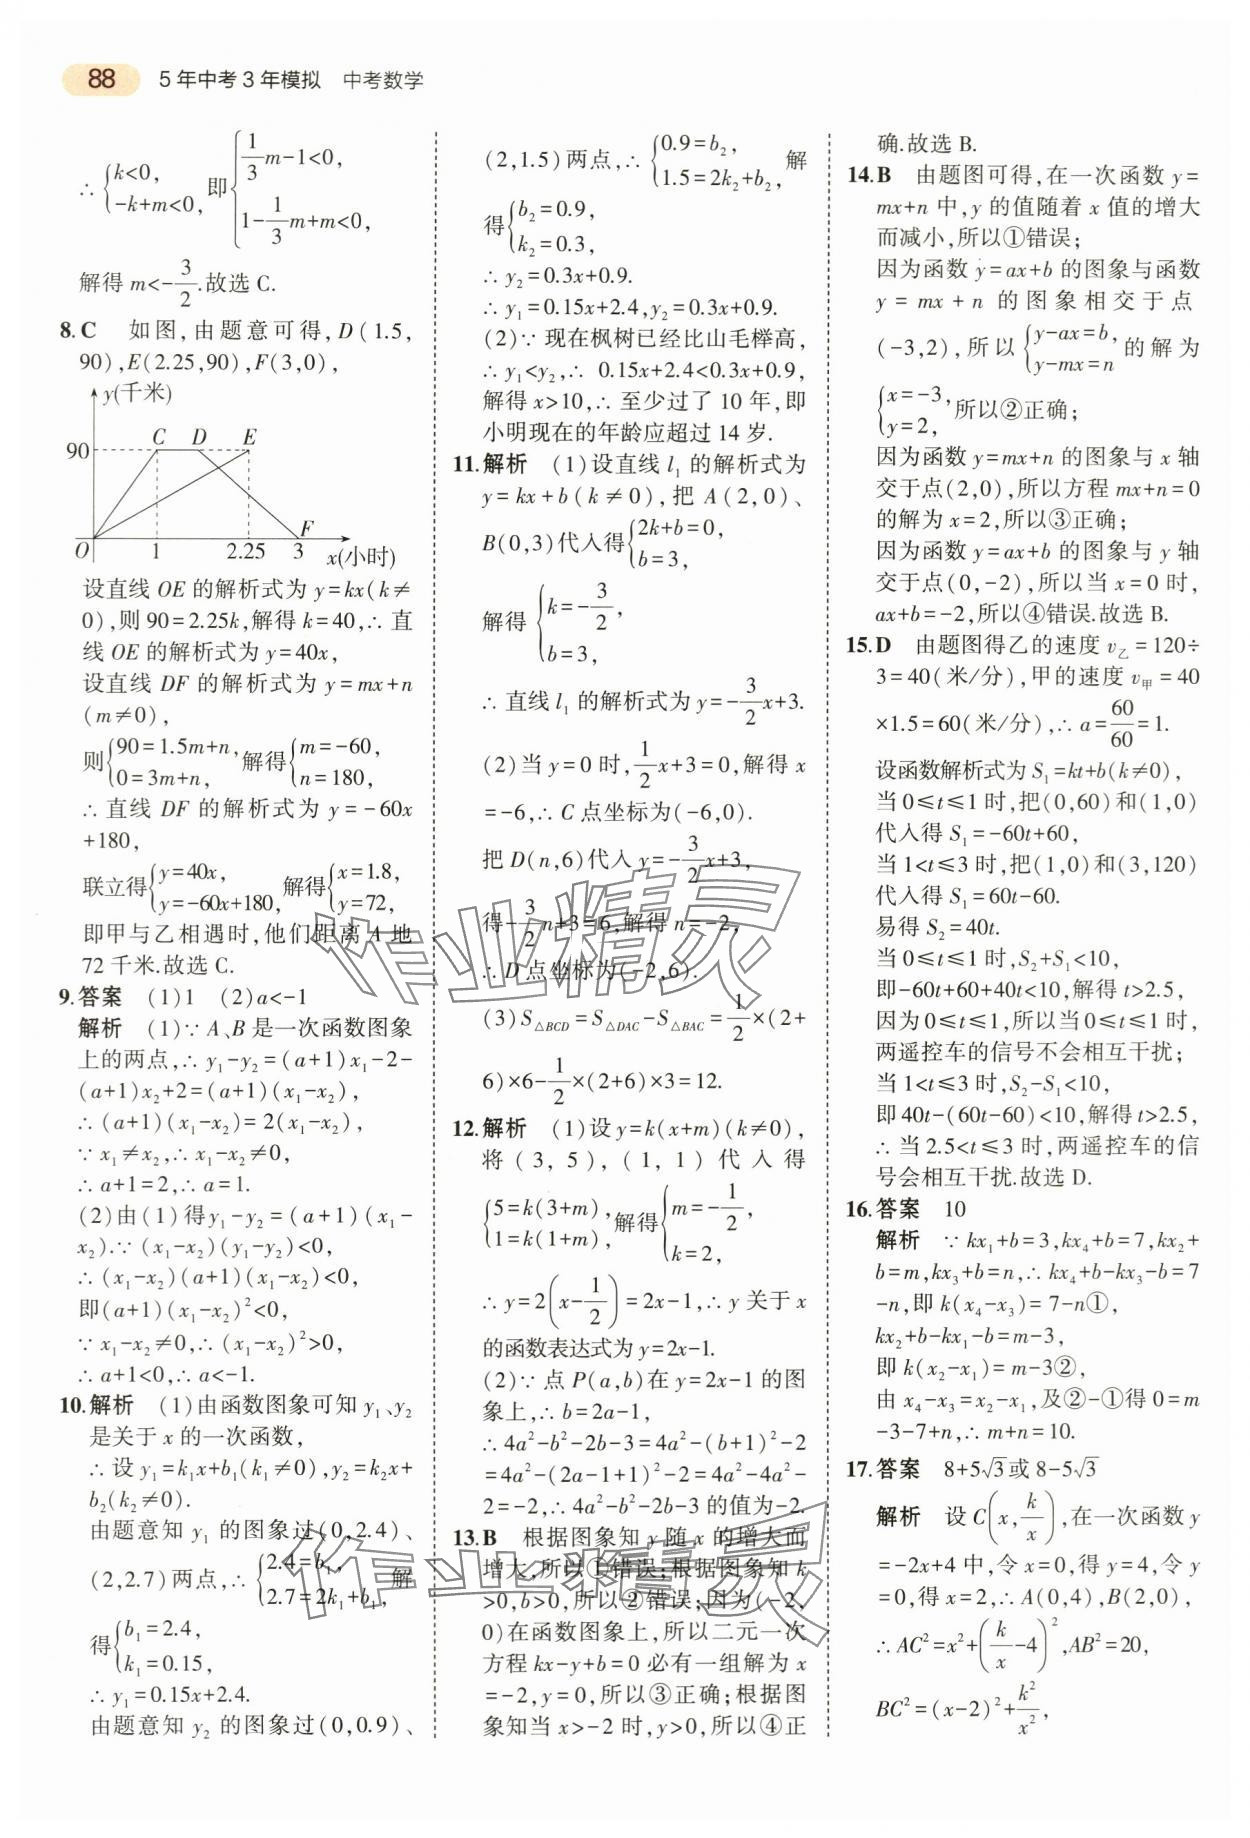 88 5年中考3年模拟 中考数学
∴{k<0, -k+m<0, 即{1/3m-1<0, 1-1/3m+m<0,
解得 m<-3/2.故选 C.
8.C 如图,由题意可得,D(1.5,
90),E(2.25,90),F(3,0),
y(千米)
C D E
90
F
O 1 2.25 3 x(小时)
设直线 OE 的解析式为 y=kx(k≠
0),则 90=2.25k,解得 k=40,∴直
线 OE 的解析式为 y=40x,
设直线 DF 的解析式为 y=mx+n
(m≠0),
则{90=1.5m+n, 0=3m+n, 解得{m=-60, n=180,
∴直线 DF 的解析式为 y=-60x
+180,
联立得{y=40x, y=-60x+180, 解得{x=1.8, y=72,
即甲与乙相遇时,他们距离 A 地
72 千米.故选 C.
9.答案 (1)1 (2)a<-1
解析 (1)∵A、B 是一次函数图象
上的两点,∴y₁-y₂=(a+1)x₁-2-
(a+1)x₂+2=(a+1)(x₁-x₂),
∴(a+1)(x₁-x₂)=2(x₁-x₂),
∵x₁≠x₂,∴x₁-x₂≠0,
∴a+1=2,∴a=1.
(2)由(1)得y₁-y₂=(a+1)(x₁-
x₂).∵(x₁-x₂)(y₁-y₂)<0,
∴(x₁-x₂)(a+1)(x₁-x₂)<0,
即(a+1)(x₁-x₂)²<0,
∵x₁-x₂≠0,∴(x₁-x₂)²>0,
∴a+1<0,∴a<-1.
10.解析 (1)由函数图象可知 y₁、y₂
是关于 x 的一次函数,
∴设 y₁=k₁x+b₁(k₁≠0),y₂=k₂x+
b₂(k₂≠0).
由题意知 y₁ 的图象过(0,2.4)、
(2,2.7)两点,∴{2.4=b₁, 2.7=2k₁+b₁, 解
得{b₁=2.4, k₁=0.15,
∴y₁=0.15x+2.4.
由题意知 y₂ 的图象过(0,0.9)、
(2,1.5)两点,∴{0.9=b₂, 1.5=2k₂+b₂, 解
得{b₂=0.9, k₂=0.3,
∴y₂=0.3x+0.9.
∴y₁=0.15x+2.4,y₂=0.3x+0.9.
(2)∵现在枫树已经比山毛榉高,
∴y₁<y₂,∴0.15x+2.4<0.3x+0.9,
解得 x>10,∴至少过了 10 年,即
小明现在的年龄应超过 14 岁.
11.解析 (1)设直线 l₁ 的解析式为
y=kx+b(k≠0),把 A(2,0)、
B(0,3)代入得{2k+b=0, b=3,
解得{k=-3/2, b=3,
∴直线 l₁ 的解析式为 y=-3/2x+3.
(2)当 y=0 时,1/2x+3=0,解得 x
=-6,∴C 点坐标为(-6,0).
把 D(n,6)代入 y=-3/2x+3,
得-3/2n+3=6,解得 n=-2,
∴D 点坐标为(-2,6).
(3)S△BCD=S△DAC-S△BAC=1/2×(2+
6)×6-1/2×(2+6)×3=12.
12.解析 (1)设 y=k(x+m)(k≠0),
将(3,5),(1,1)代入得
{5=k(3+m), 1=k(1+m), 解得{m=-1/2, k=2,
∴y=2(x-1/2)=2x-1,∴y 关于 x
的函数表达式为 y=2x-1.
(2)∵点 P(a,b)在 y=2x-1 的图
象上,∴b=2a-1,
∴4a²-b²-2b-3=4a²-(b+1)²-2
=4a²-(2a-1+1)²-2=4a²-4a²-
2=-2,∴4a²-b²-2b-3 的值为-2.
13.B 根据图象知 y 随 x 的增大而
增大,所以①错误;根据图象知 k
>0,b>0,所以②错误;因为(-2,
0)在函数图象上,所以二元一次
方程 kx-y+b=0 必有一组解为 x
=-2,y=0,所以③正确;根据图
象知当 x>-2 时,y>0,所以④正
确.故选 B.
14.B 由题图可得,在一次函数 y=
mx+n 中,y 的值随着 x 值的增大
而减小,所以①错误;
因为函数 y=ax+b 的图象与函数
y=mx+n 的图象相交于点
(-3,2),所以{y-ax=b, y-mx=n 的解为
{x=-3, y=2, 所以②正确;
因为函数 y=mx+n 的图象与 x 轴
交于点(2,0),所以方程 mx+n=0
的解为 x=2,所以③正确;
因为函数 y=ax+b 的图象与 y 轴
交于点(0,-2),所以当 x=0 时,
ax+b=-2,所以④错误.故选 B.
15.D 由题图得乙的速度 v乙=120÷
3=40(米/分),甲的速度 v甲=40
×1.5=60(米/分),∴a=60/60=1.
设函数解析式为 S₁=kt+b(k≠0),
当 0≤t≤1 时,把(0,60)和(1,0)
代入得 S₁=-60t+60,
当 1<t≤3 时,把(1,0)和(3,120)
代入得 S₁=60t-60.
易得 S₂=40t.
当 0≤t≤1 时,S₂+S₁<10,
即-60t+60+40t<10,解得 t>2.5,
因为 0≤t≤1,所以当 0≤t≤1 时,
两遥控车的信号不会相互干扰;
当 1<t≤3 时,S₂-S₁<10,
即 40t-(60t-60)<10,解得 t>2.5,
∴当 2.5<t≤3 时,两遥控车的信
号会相互干扰.故选 D.
16.答案 10
解析 ∵kx₁+b=3,kx₄+b=7,kx₂+
b=m,kx₃+b=n,∴kx₄+b-kx₃-b=7
-n,即 k(x₄-x₃)=7-n①,
kx₂+b-kx₁-b=m-3,
即 k(x₂-x₁)=m-3②,
由 x₄-x₃=x₂-x₁,及②-①得 0=m
-3-7+n,∴m+n=10.
17.答案 8+5√3或 8-5√3
解析 设 C(x,k/x),在一次函数 y
=-2x+4 中,令 x=0,得 y=4,令 y
=0,得 x=2,∴A(0,4),B(2,0),
∴AC²=x²+(k/x-4)²,AB²=20,
BC²=(x-2)²+k²/x²,
作业精灵
作业精灵